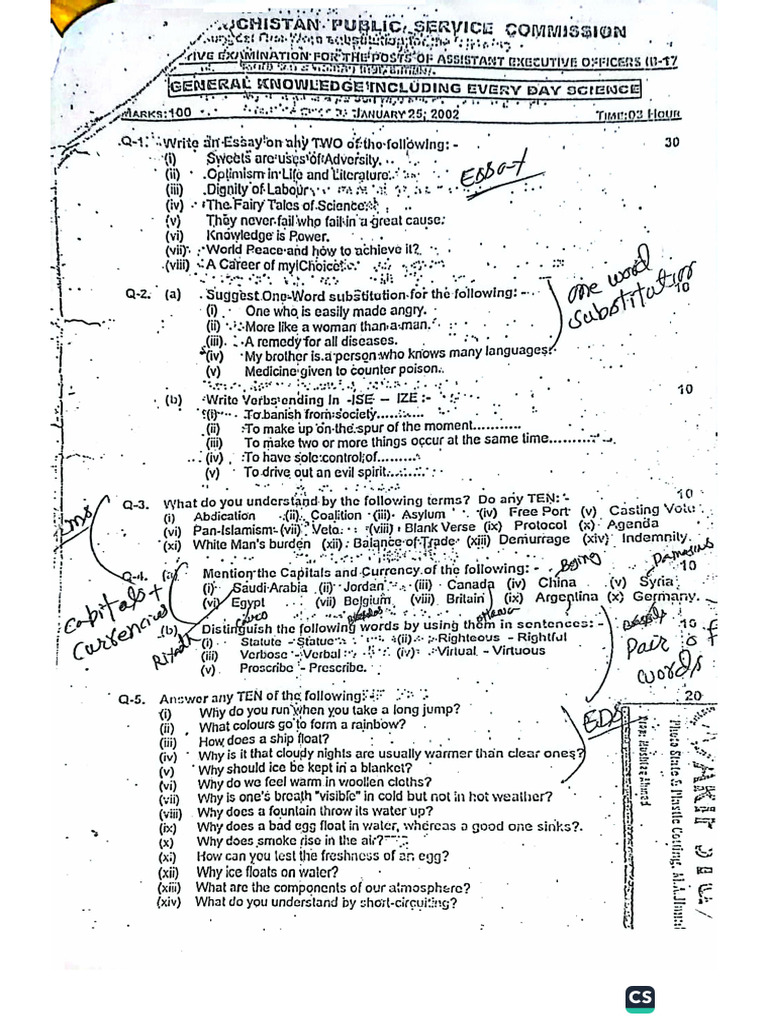 CHISTAN PUBLIC SERVICE COMMISSION
EXAMINATION FOR THE POSTS OF ASSISTANT EXECUTIVE OFFICERS (B-17
GENERAL KNOWLEDGE INCLUDING EVERY DAY SCIENCE
MARKS:100 JANUARY 25, 2002 TIME:03 HOUR
Q-1. Write an Essay on any TWO of the following: - 30
(i) Sweets are uses of Adversity.
(ii) Optimism in Life and Literature.
(iii) Dignity of Labour
Essay
(iv) The Fairy Tales of Science.
(v) They never fail who fail in a great cause.
(vi) Knowledge is Power.
(vii) World Peace and how to achieve it?
(viii) A Career of my Choice.
Q-2. (a) Suggest One-Word substitution for the following: - 10
one word substitution
(i) One who is easily made angry.
(ii) More like a woman than a man.
(iii) A remedy for all diseases.
(iv) My brother is a person who knows many languages.
(v) Medicine given to counter poison.
(b) Write Verbs ending in -ISE – IZE :- 10
(i) To banish from society..........
(ii) To make up on the spur of the moment...........
(iii) To make two or more things occur at the same time...........
(iv) To have sole control of.........
(v) To drive out an evil spirit..........
Q-3. What do you understand by the following terms? Do any TEN: - 10
(i) Abdication (ii) Coalition (iii) Asylum (iv) Free Port (v) Casting Vote
(vi) Pan-Islamism (vii) Veto (viii) Blank Verse (ix) Protocol (x) Agenda
(xi) White Man's burden (xii) Balance of Trade (xiii) Demurrage (xiv) Indemnity.
Q-4. (a) Mention the Capitals and Currency of the following: - 10
Damascus
(i) Saudi Arabia (ii) Jordan (iii) Canada (iv) China (v) Syria
(vi) Egypt (vii) Belgium (viii) Britain (ix) Argentina (x) Germany.
Capitals + Currencies
Cairo
Ottawa
Riyadh
(b) Distinguish the following words by using them in sentences: - 10
Pair of words
(i) Statute - Statue (ii) Righteous - Rightful
(iii) Verbose - Verbal (iv) Virtual - Virtuous
(v) Proscribe - Prescribe.
Q-5. Answer any TEN of the following: 20
EDS
(i) Why do you run when you take a long jump?
(ii) What colours go to form a rainbow?
(iii) How does a ship float?
(iv) Why is it that cloudy nights are usually warmer than clear ones?
(v) Why should ice be kept in a blanket?
(vi) Why do we feel warm in woollen cloths?
(vii) Why is one's breath "visible" in cold but not in hot weather?
(viii) Why does a fountain throw its water up?
(ix) Why does a bad egg float in water, whereas a good one sinks?.
(x) Why does smoke rise in the air?
(xi) How can you test the freshness of an egg?
(xii) Why ice floats on water?
(xiii) What are the components of our atmosphere?
(xiv) What do you understand by short-circuiting?
Photo State & Plastic Coating, M.A.Jinnah
CS